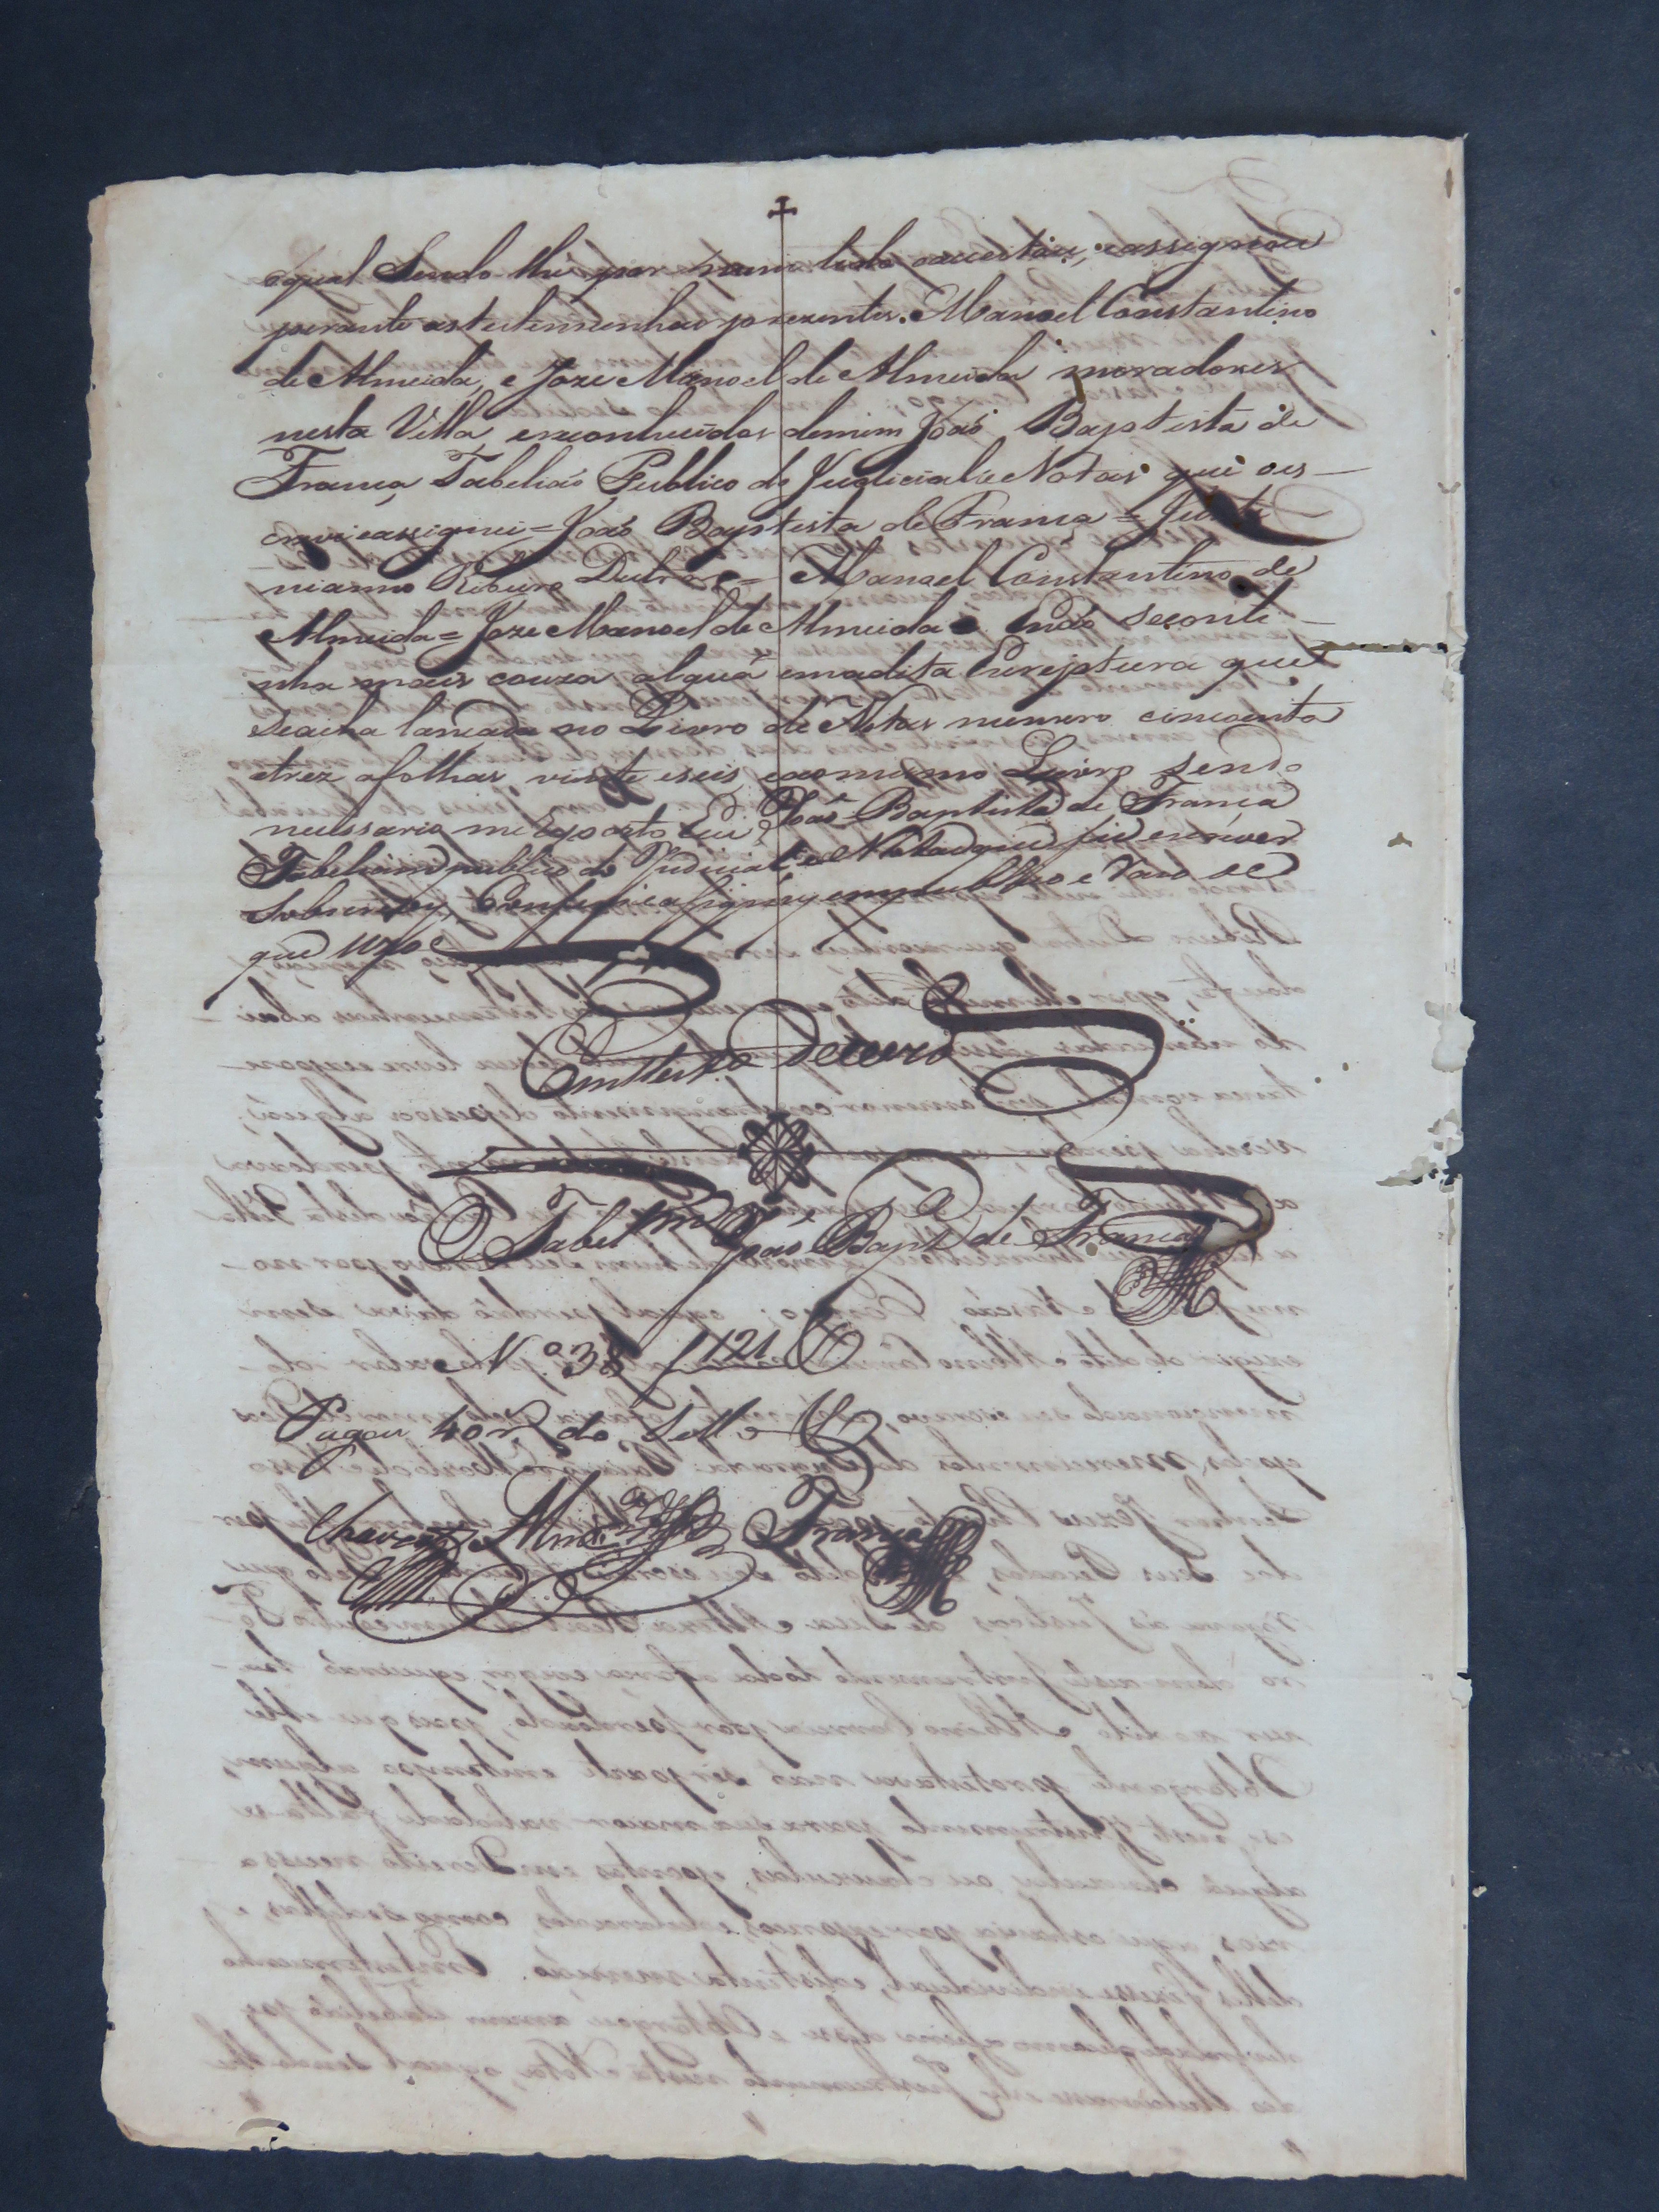 oqual Sendo lhe por mim lido aceitou, e assignou
perante as testemunhas prezentes. Manoel Constantino
de Almeida, e Joze Manoel de Almeida moradores
nesta Villa, ereconhecidos demim Joaõ Baptista de
França Tabeliaõ Publico do Judicial e Notas que oes-
crevi eassignei = Joaõ Baptista de França = Justi
nianno Ribeiro Dutra = Manoel Constantino de
Almeida = Joze Manoel de Almeida = Enaõ seconti-
nha mais couza alguã emadita Escriptura que
seacha lançada no Livro de Notas numero cincoenta
etrez afolhas vinte eseis, eaomesmo Livro sendo
necessario me Reporto Eu Joaõ Baptista de França
Tabeliam publico do Judicial e Notas que fiz escrever
Sobscrevy, Conferi e assigney em publico e Razo de
que uzo
Em test.o de verd.e
O Tabel.m Joaõ Bapt.a de França
N.o 38 121
Pagou 40 r.s do Sello
Almd.a França